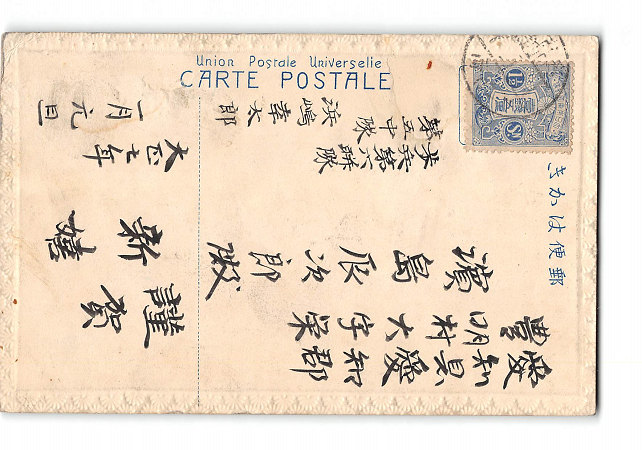 Union Postale Universelle
CARTE POSTALE
郵便はかき
愛知県愛知郡
豊明村大字栄
濱島辰次郎殿
歩兵第六聯隊
第五中隊
浜嶋幸太郎
謹賀
新禧
大正七年
一月元旦